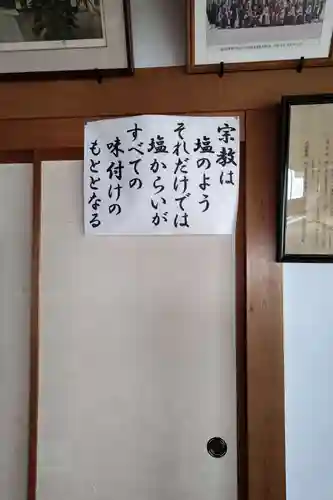 宗教は
塩のよう
それだけでは
塩からいが
すべての
味付けの
もととなる